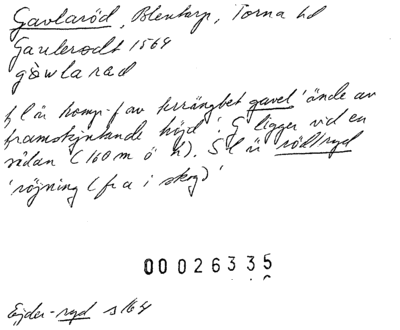 Gavlaröd, Blentarp, Torna hd
Gaulerodt 1564
gòwlarad
f l är komp-f av terrängbet gavel 'ände av
framskjutande höjd'. G ligger vid en
sådan (160 m ö h). S l är röd/ryd
'röjning (fr a i skog)'
00 026335
Ejder-ryd s 164